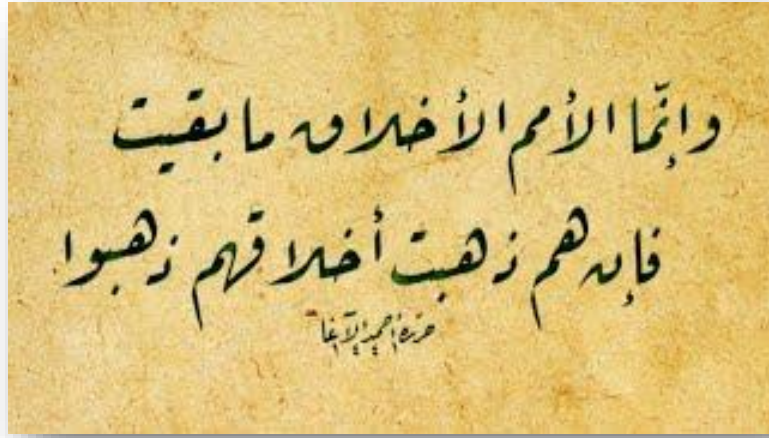 وإنّما الأمم الأخلاق ما بقيت
فإن هم ذهبت أخلاقهم ذهبوا